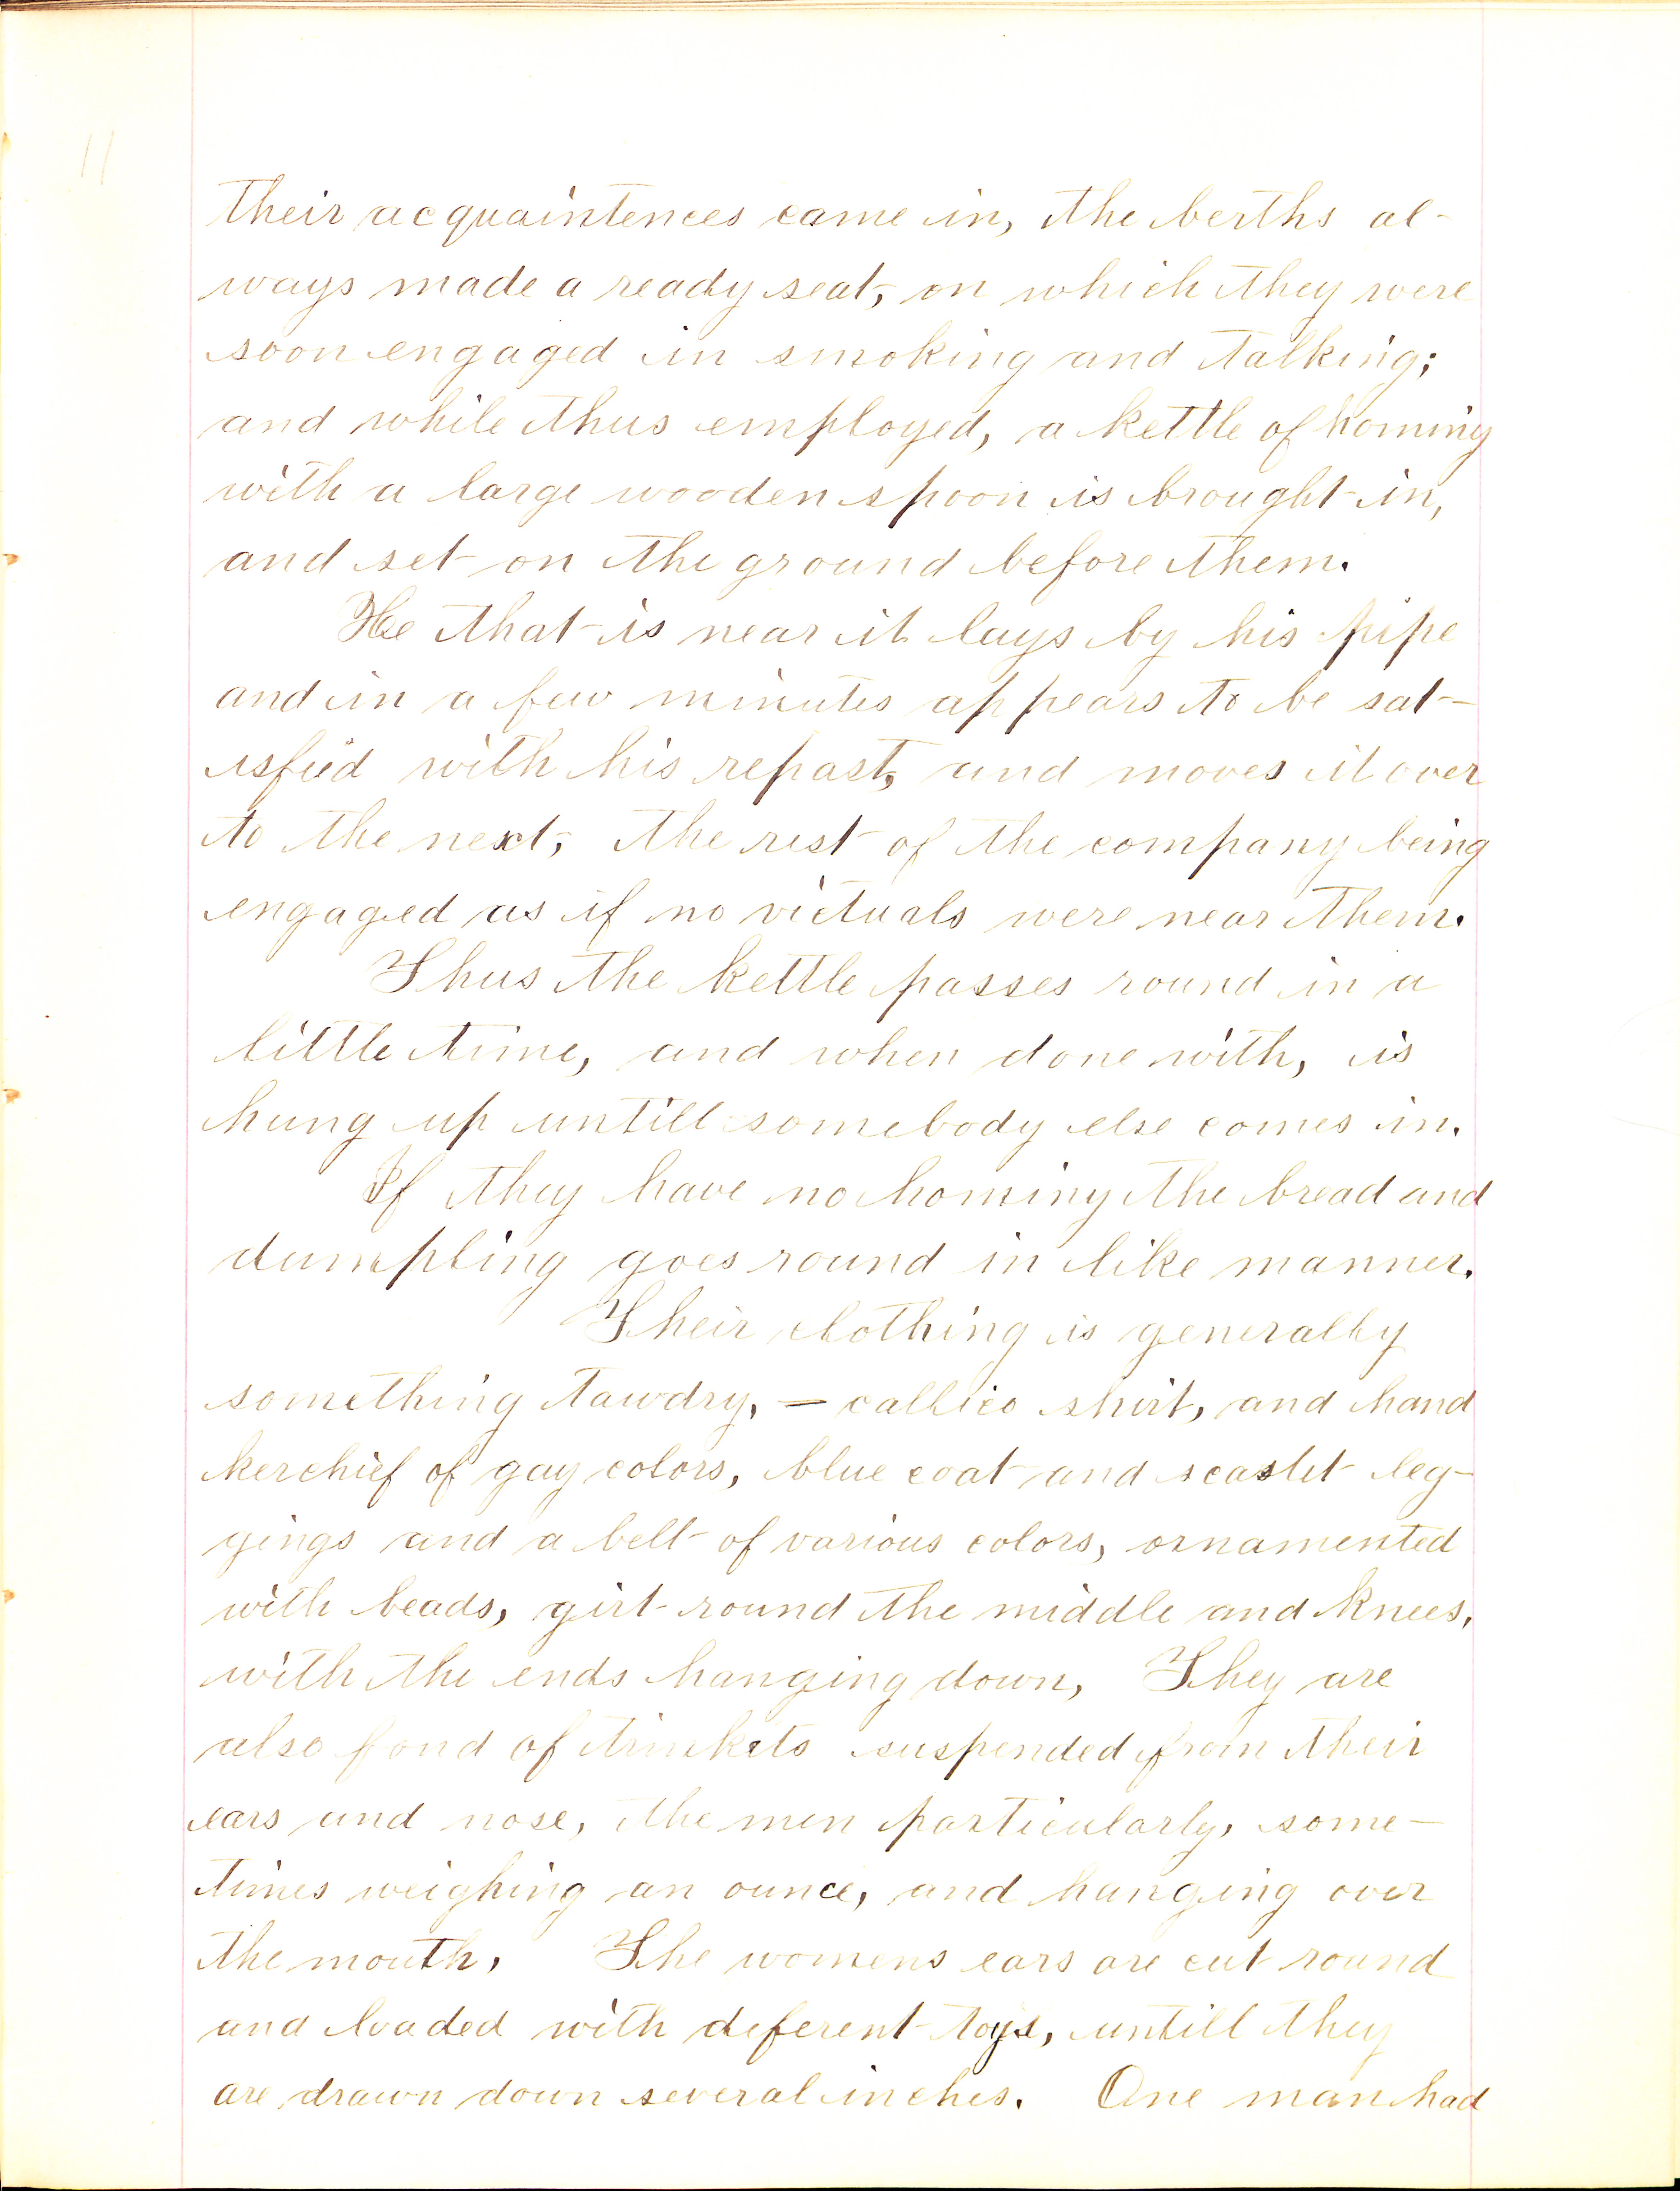 11
their acquaintences came in, the berths al-
ways made a ready seat, on which they were
soon engaged in smoking and talking;
and while thus employed, a kettle of hominy
with a large wooden spoon is brought in,
and set on the ground before them.
He that is near it lays by his pipe
and in a few minutes appears to be sat-
isfied with his repast, and moves it over
to the next, the rest of the company being
engaged as if no victuals were near them.
Thus the kettle passes round in a
little time, and when done with, is
hung up untill somebody else comes in.
If they have no hominy the bread and
dumpling goes round in like manner.
Their clothing is generally
something tawdry, — callico shirt, and hand
kerchief of gay colors, blue coat and scarlet leg-
gings and a belt of various colors, ornamented
with beads, girt round the middle and knees,
with the ends hanging down, They are
also fond of trinkets suspended from their
ears and nose, the men particularly, some-
times weighing an ounce, and hanging over
the mouth, The womens ears are cut round
and loaded with deferent toys, untill they
are drawn down several inches. One man had